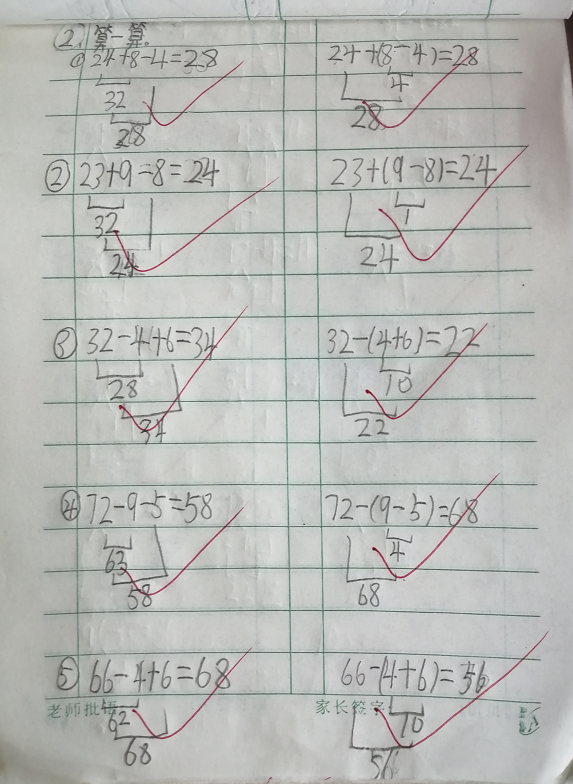 2. 算一算。
① 24+8-4=28 24+(8-4)=28
32 4
28 28
② 23+9-8=24 23+(9-8)=24
32 1
24 24
③ 32-4+6=34 32-(4+6)=22
28 10
34 22
④ 72-9-5=58 72-(9-5)=68
63 4
58 68
⑤ 66-4+6=68 66-(4+6)=56
老师批 家长签字
62 10
68 56